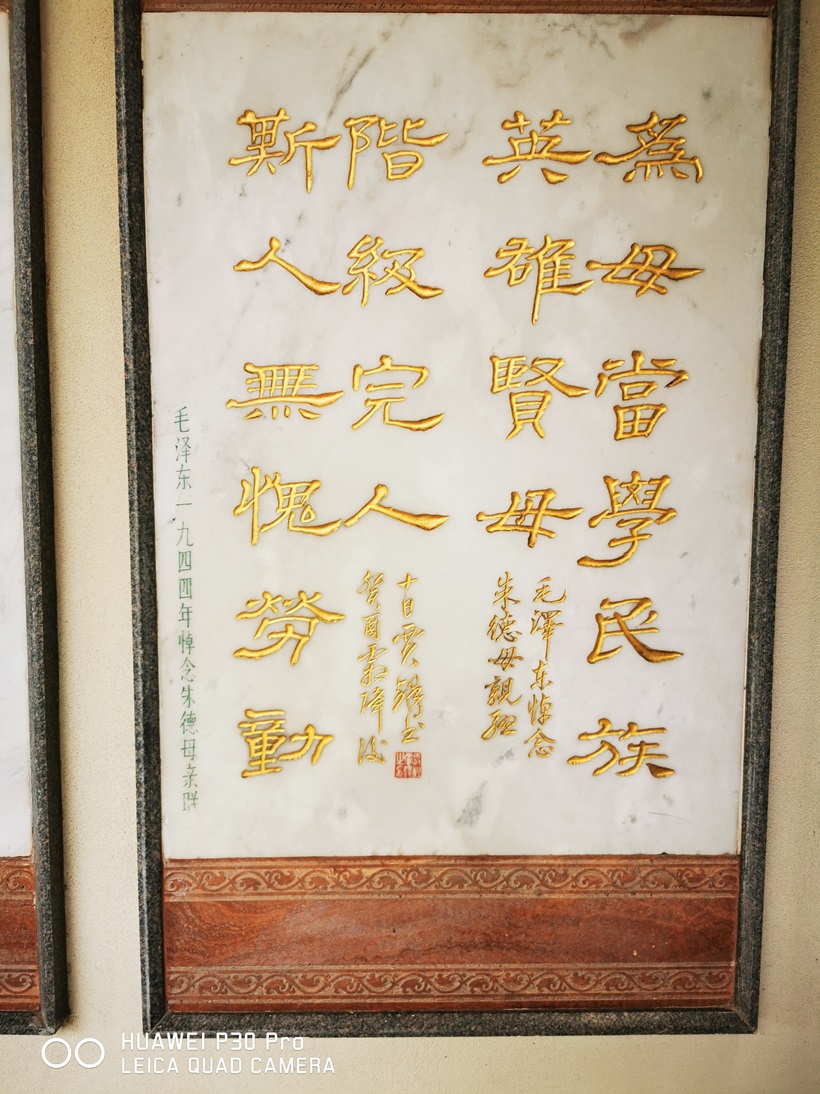 爲母當學民族
英雄賢母
毛澤东悼念
朱德母親聯
斯人無愧勞動
階級完人
癸酉霜降後
十日賈书
毛泽东一九四四年悼念朱德母亲联
HUAWEI P30 Pro
LEICA QUAD CAMERA